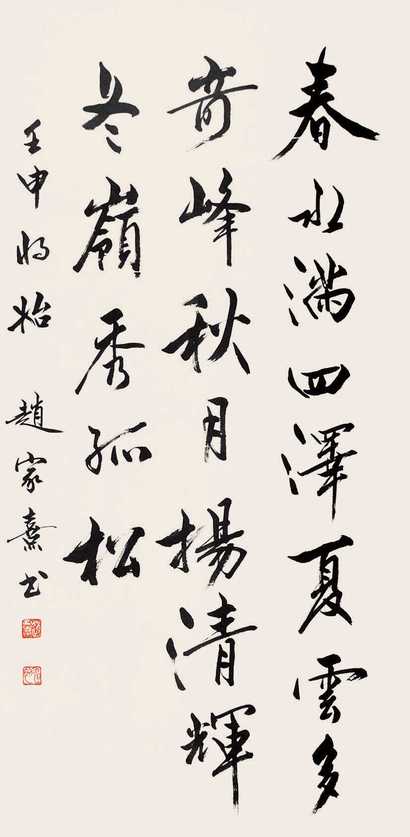 春水滿四澤夏雲多
奇峰秋月揚清輝
冬嶺秀孤松
壬申將始 趙家熹書